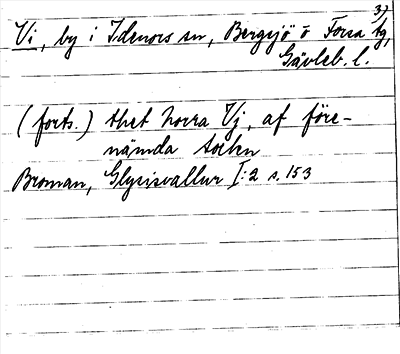 3)
Vi, by i Idenors sn, Bergsjö o Forsa tg,
Gävleb. l.
(forts.) thet norra Vj, af före-
nämda sokn
Broman, Glysisvallur I:2 s. 153